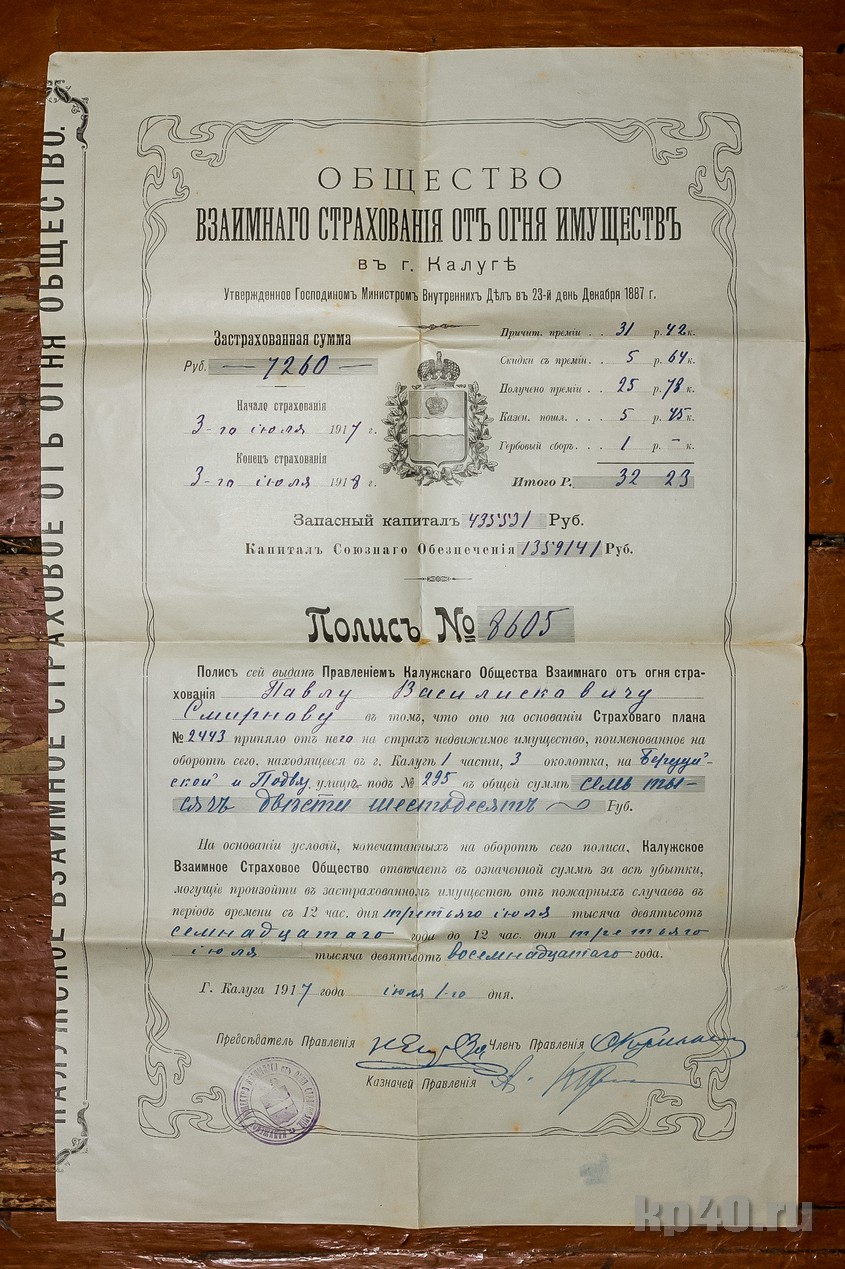 КАЛУЖСКОЕ ВЗАИМНОЕ СТРАХОВОЕ ОТЪ ОГНЯ ОБЩЕСТВО.
ОБЩЕСТВО
ВЗАИМНАГО СТРАХОВАНІЯ ОТЪ ОГНЯ ИМУЩЕСТВЪ
въ г. Калугѣ
Утвержденное Господиномъ Министромъ Внутреннихъ Дѣлъ въ 23-й день Декабря 1887 г.
Застрахованная сумма
Руб. — 7260 —
Начало страхованія
3-го іюля 1917 г.
Конецъ страхованія
3-го іюля 1918 г.
Причит. преміи . . 31 р. 42 к.
Скидки съ преміи . 5 р. 64 к.
Получено преміи . . 25 р. 78 к.
Казен. пошл. . . . 5 р. 45 к.
Гербовый сборъ . . . 1 р. — к.
Итого Р. 32 23
Запасный капиталъ 435531 Руб.
Капиталъ Союзнаго Обезпеченія 1359141 Руб.
Полисъ № 8605
Полисъ сей выданъ Правленіемъ Калужскаго Общества Взаимнаго отъ огня стра-
хованія Павлу Василисковичу
Смирнову въ томъ, что оно на основаніи Страховаго плана
№ 2443 приняло отъ него на страхъ недвижимое имущество, поименованное на
оборотѣ сего, находящееся въ г. Калугѣ 1 части, 3 околотка, на
ской и Подвл. улицѣ подъ № 295 въ общей суммѣ семь ты-
сячъ двѣсти шестьдесятъ Руб.
На основаніи условій, напечатанныхъ на оборотѣ сего полиса, Калужское
Взаимное Страховое Общество отвѣчаетъ въ означенной суммѣ за всѣ убытки,
могущіе произойти въ застрахованномъ имуществѣ отъ пожарныхъ случаевъ въ
періодъ времени съ 12 час. дня третьяго іюля тысяча девятьсотъ
семнадцатаго года до 12 час. дня третьяго
іюля тысяча девятьсотъ восемнадцатаго года.
Г. Калуга 1917 года іюля 1-го дня.
Предсѣдатель Правленія
Членъ Правленія
Казначей Правленія
kp40.ru